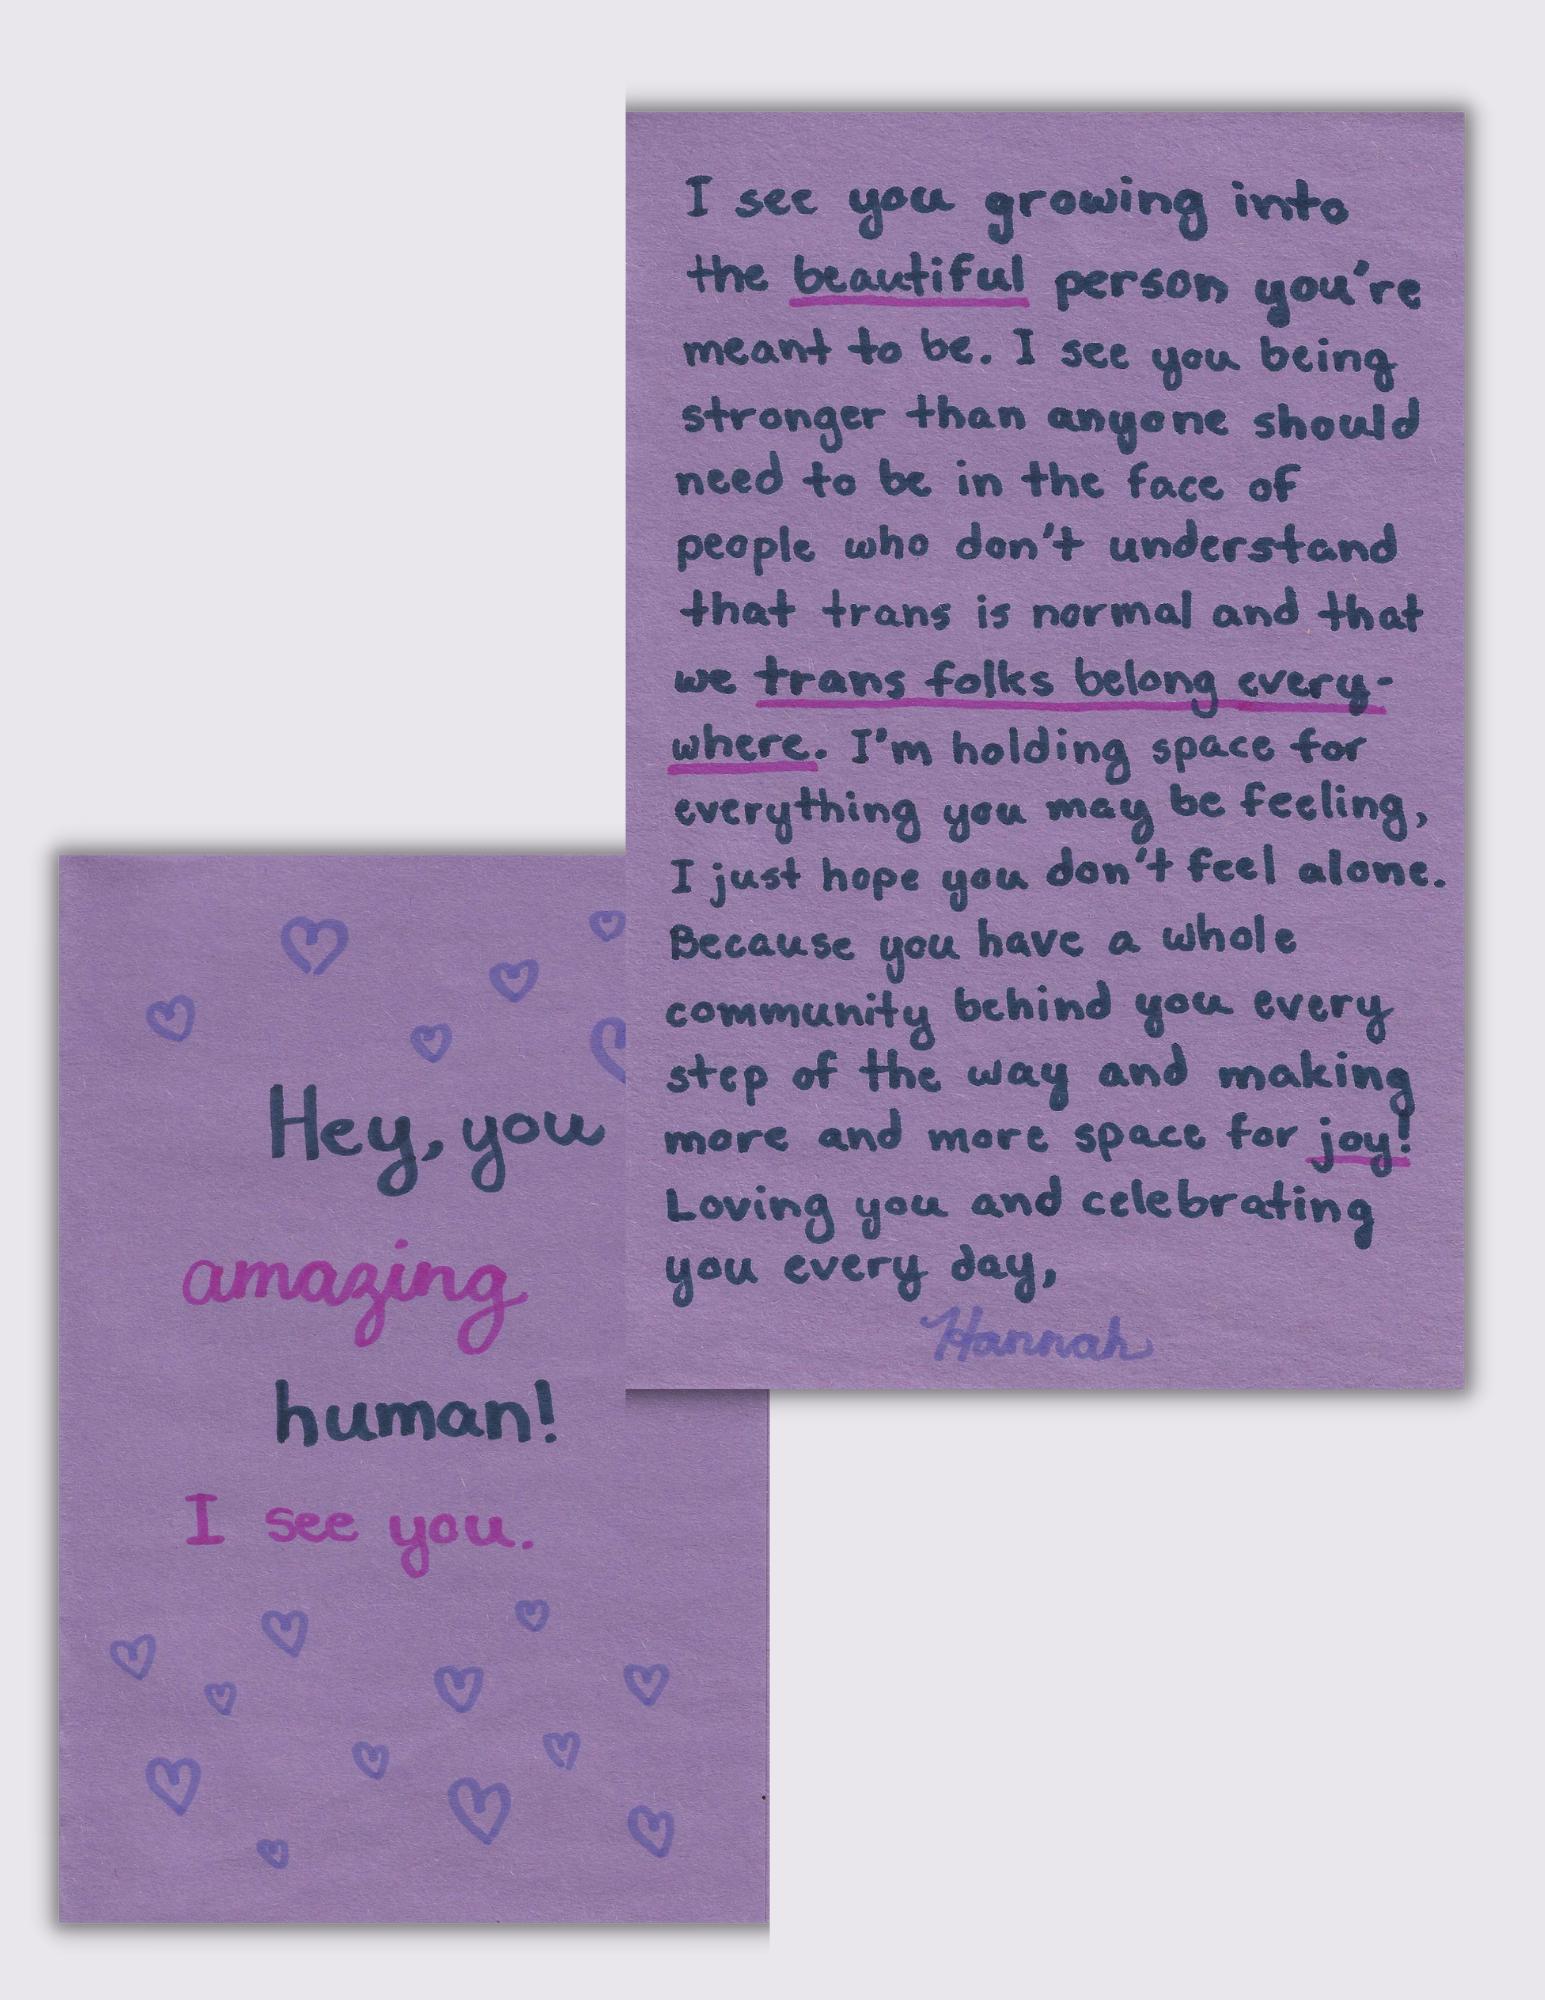 Hey, you
amazing
human!
I see you.
I see you growing into
the beautiful person you're
meant to be. I see you being
stronger than anyone should
need to be in the face of
people who don't understand
that trans is normal and that
we trans folks belong every-
where. I'm holding space for
everything you may be feeling,
I just hope you don't feel alone.
Because you have a whole
community behind you every
step of the way and making
more and more space for joy!
Loving you and celebrating
you every day,
Hannah